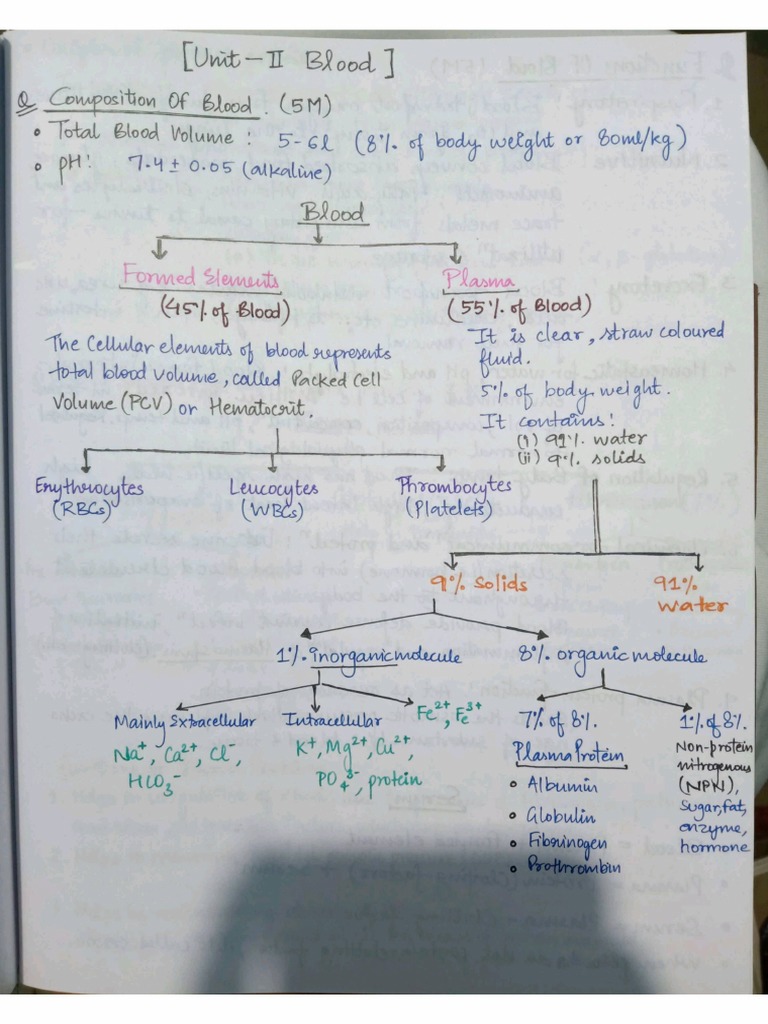 [Unit-II Blood]
Q Composition Of Blood. (5M)
• Total Blood Volume: 5-6l (8% of body weight or 80ml/kg)
• pH: 7.4 ± 0.05 (alkaline)
Blood
Formed Elements
(45% of Blood)
The Cellular elements of blood represents
total blood volume, called Packed Cell
Volume (PCV) or Hematocrit.
Plasma
(55% of Blood)
It is clear, straw coloured
fluid.
5% of body weight.
It contains:
(i) 91% water
(ii) 9% solids
Erythrocytes
(RBCs)
Leucocytes
(WBCs)
Thrombocytes
(Platelets)
9% Solids
91%
Water
1% inorganic molecule
8% organic molecule
Mainly Extracellular
Na⁺, Ca²⁺, Cl⁻,
HCO₃⁻
Intracellular
K⁺, Mg²⁺, Cu²⁺,
PO₄³⁻, protein
Fe²⁺, Fe³⁺
7% of 8%.
Plasma Protein
• Albumin
• Globulin
• Fibrinogen
• Prothrombin
1% of 8%.
Non-protein
nitrogenous
(NPN),
Sugar, fat,
enzyme,
hormone